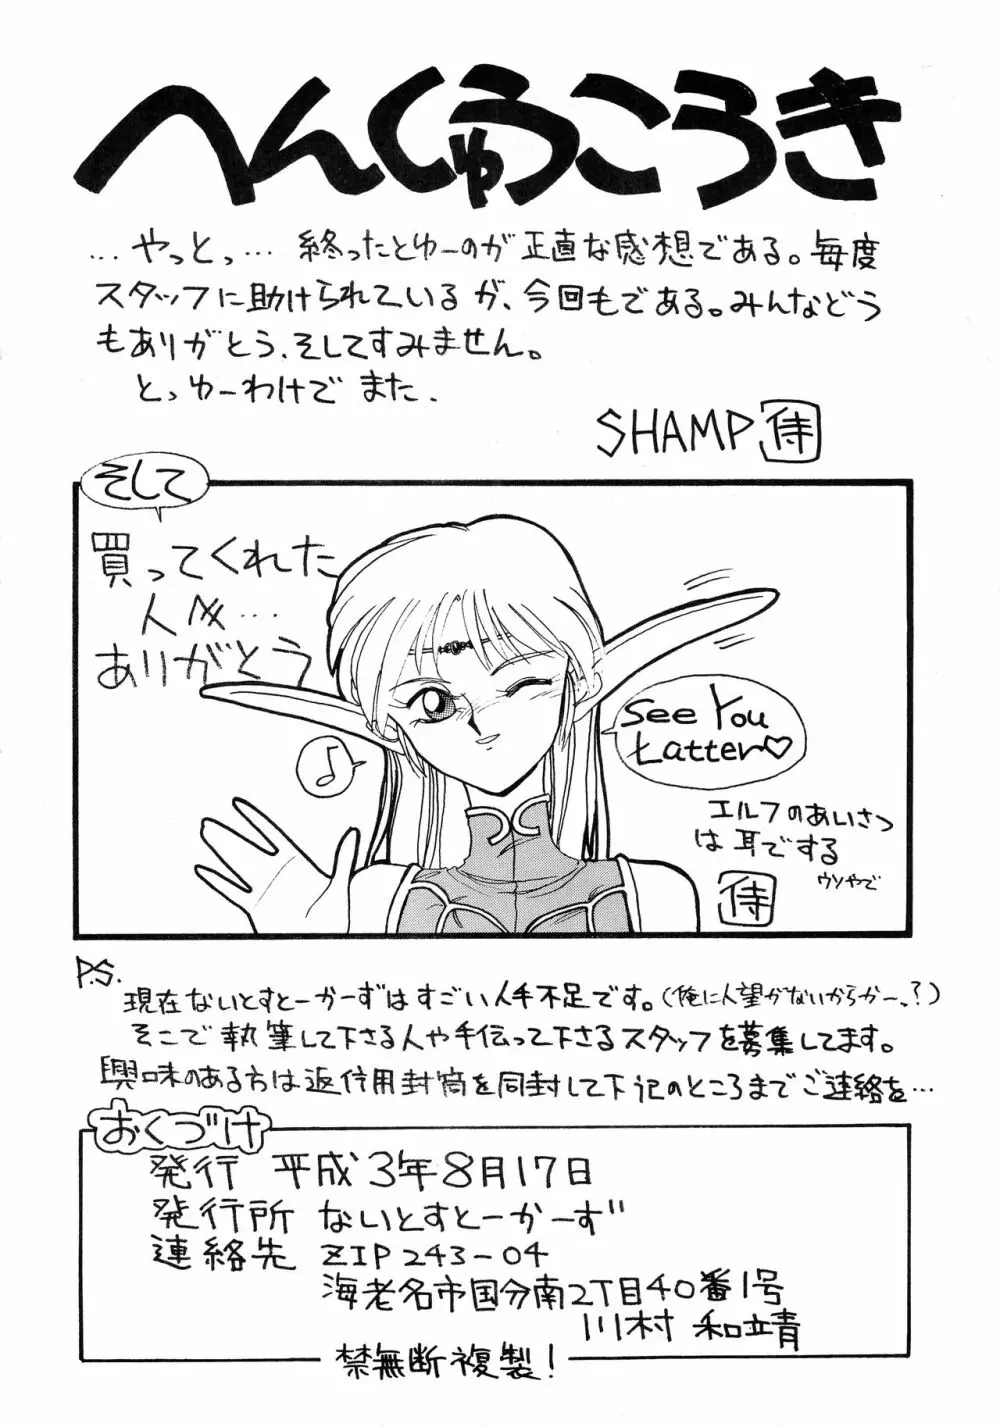 へんしゅうこうき
…やっとっ… 終ったとゆーのが正直な感想である。毎度
スタッフに助けられているが、今回もである。みんなどう
もありがとう、そしてすみません。
とっゆーわけで また.
SHAMP 侍
そして
買ってくれた
人々…
ありがとう
See You
Latter♡
♪
エルフのあいさつ
は耳でする
ウソやで
侍
P.S.
現在ないとすとーかーずはすごい人手不足です。(俺に人望がないからかー、?)
そこで執筆して下さる人や手伝って下さるスタッフを募集してます。
興味のある方は返信用封筒を同封して下記のところまでご連絡を…
おくづけ
発行 平成3年8月17日
発行所 ないとすとーかーず
連絡先 ZIP 243-04
海老名市国分南2丁目40番1号
川村 和靖
禁無断複製!